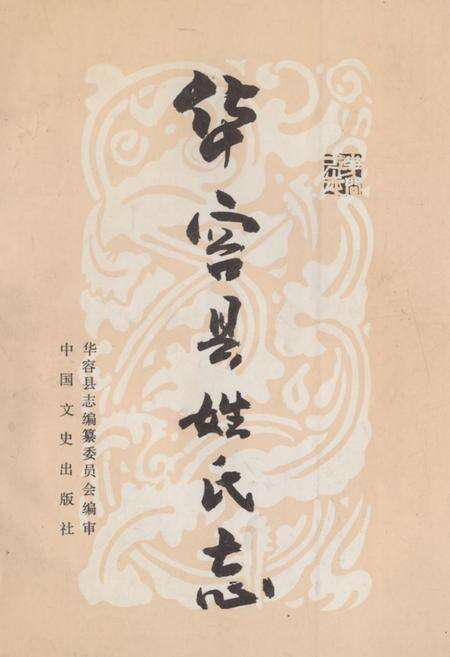 华容县姓氏志
华容县志编纂委员会编审
中国文史出版社